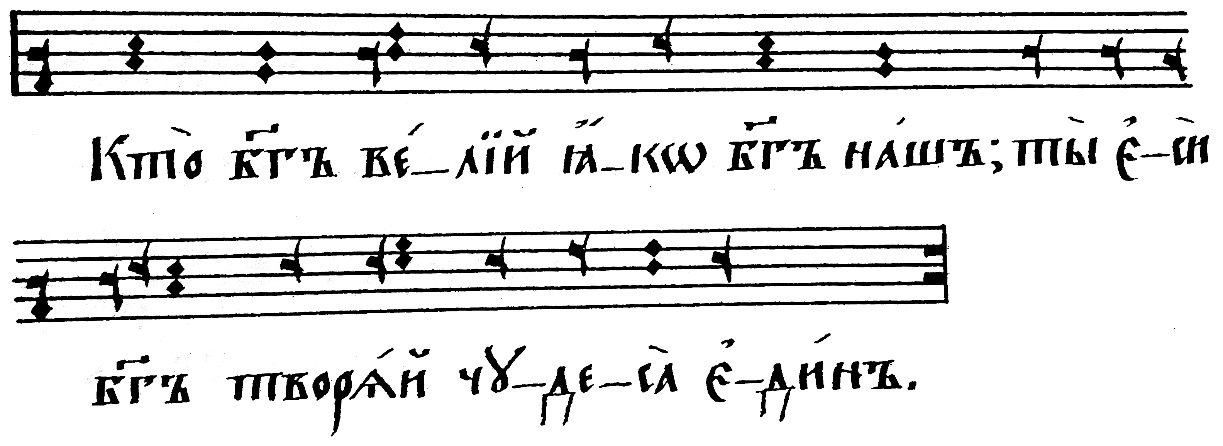 Кто̀ бг҃ъ ве́_лїй ꙗ҆́_кѡ бг҃ъ на́шъ; ты̀ є҆_сѝ
бг҃ъ творѧ́й чꙋ_де_са̀ є҆_ди́нъ.